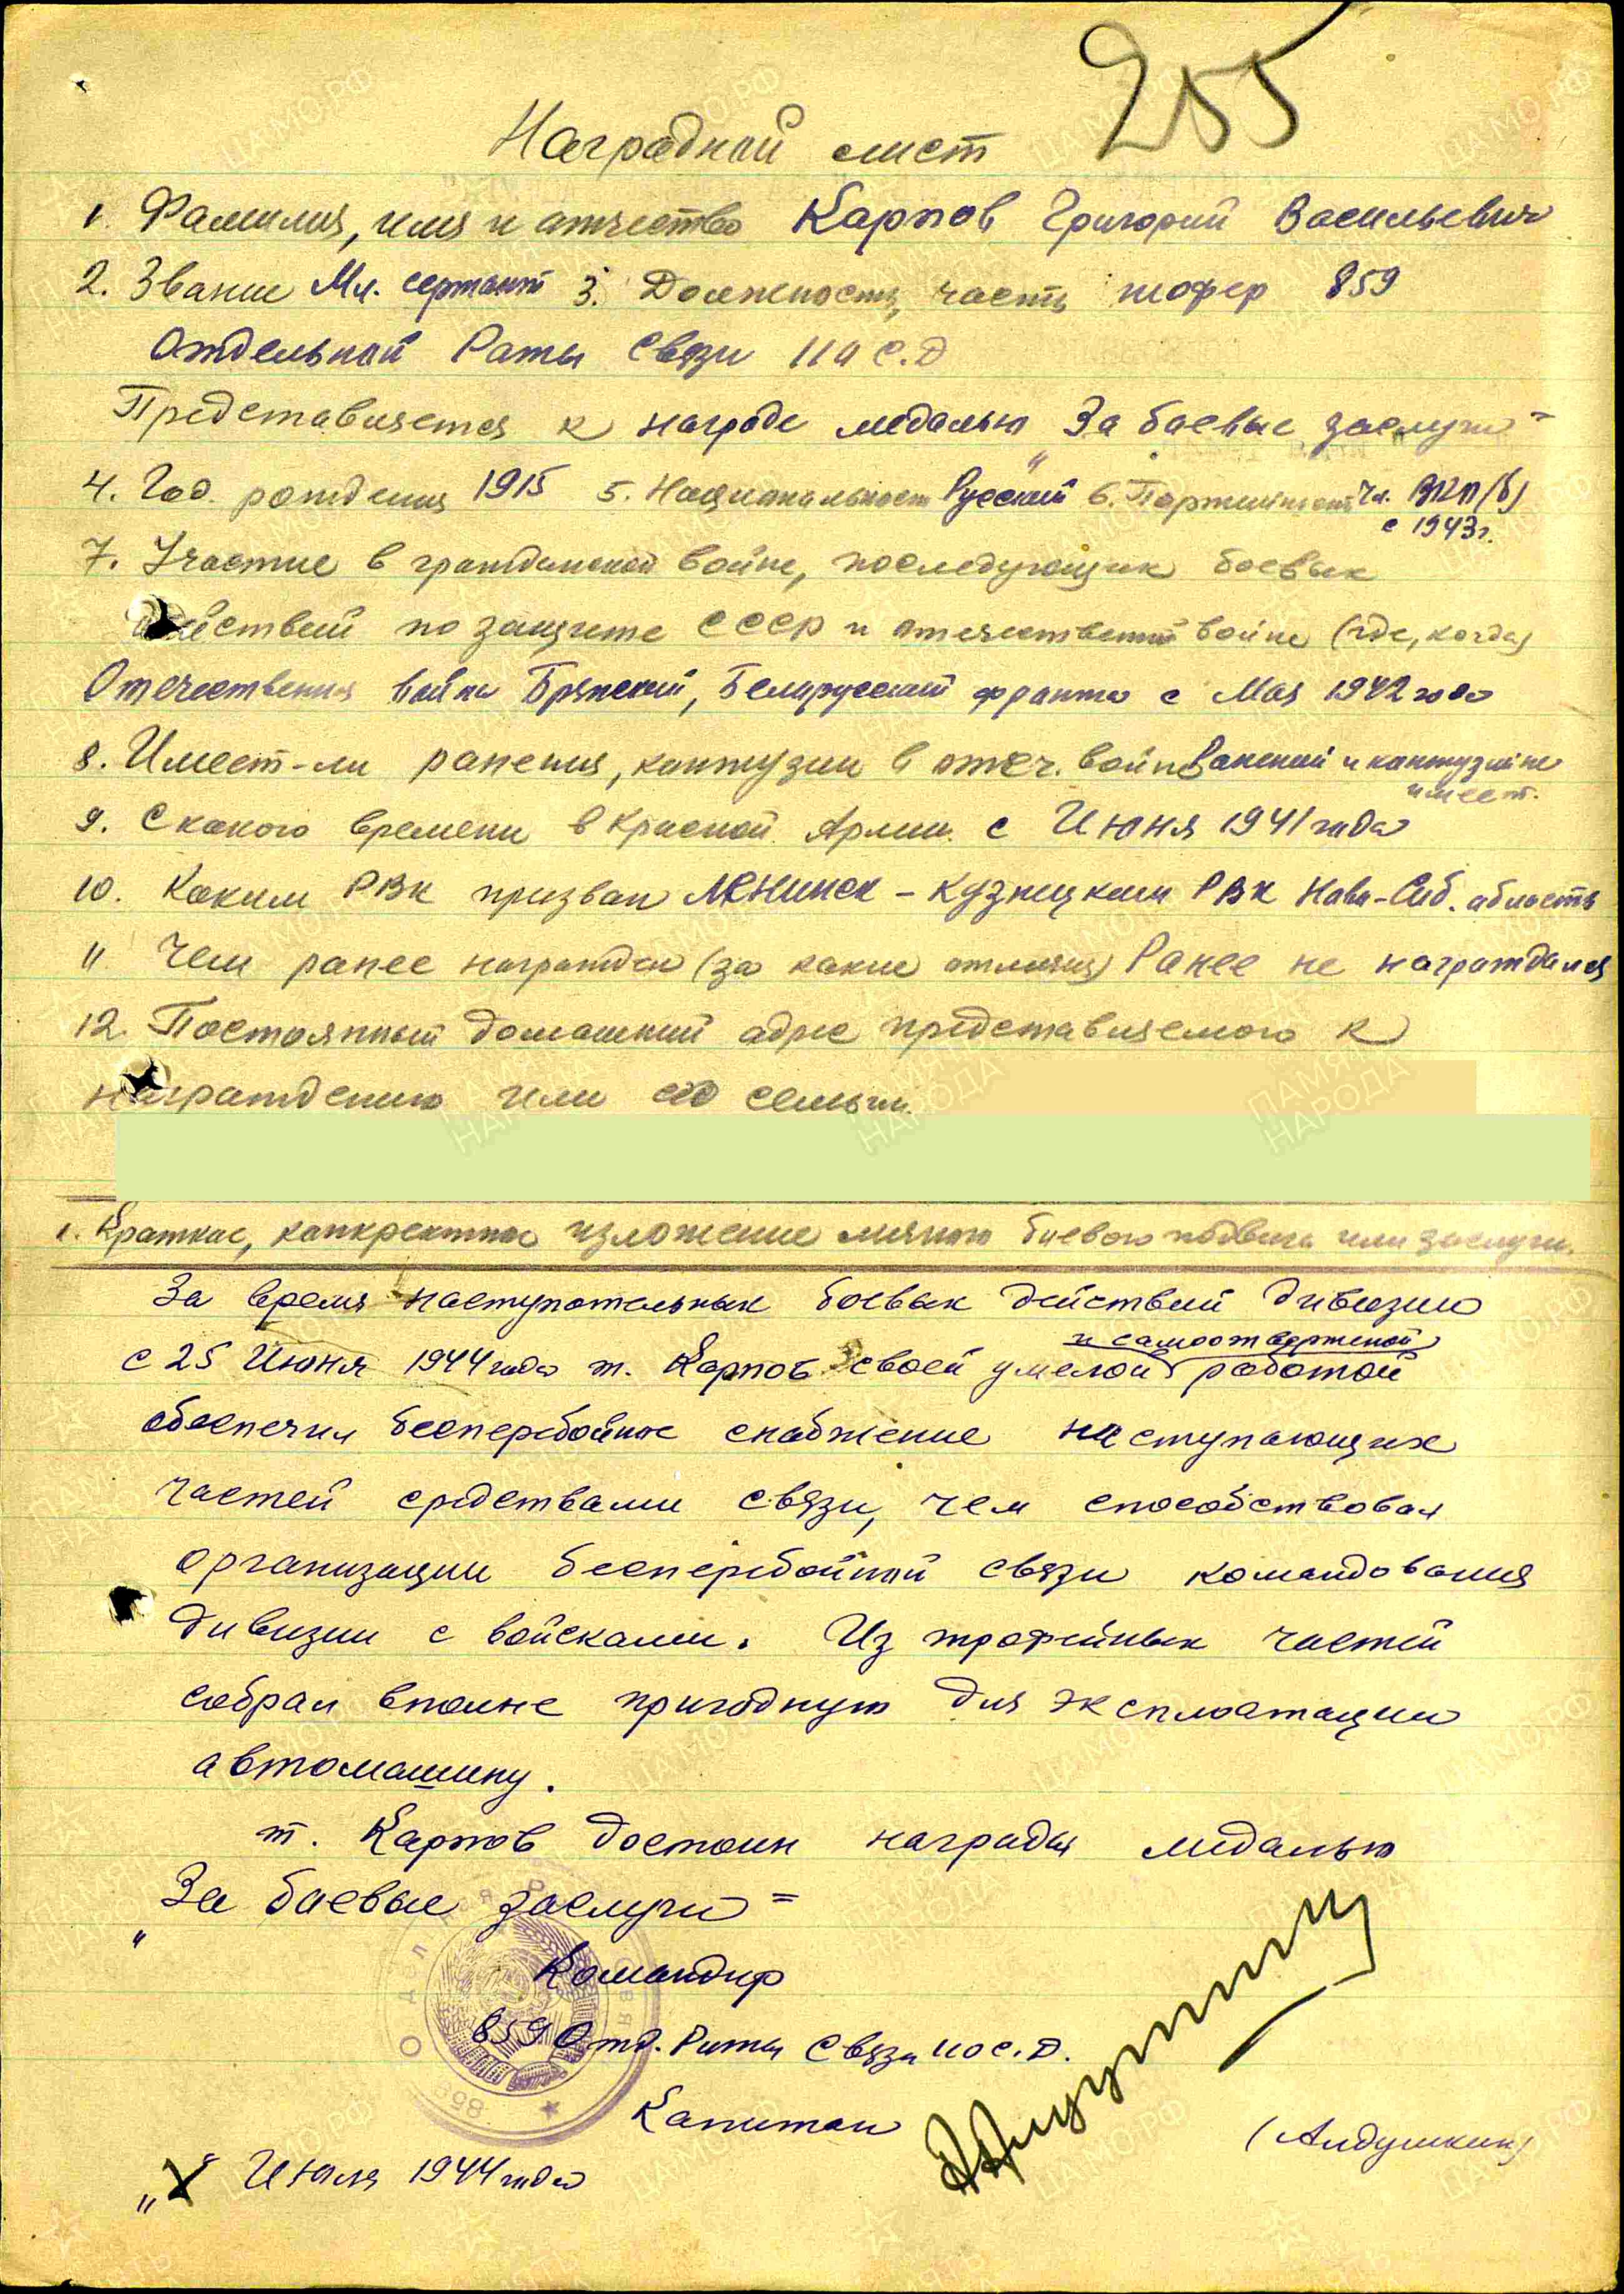 255
Наградной лист
1. Фамилия, имя и отчество Карпов Григорий Васильевич
2. Звание Мл. сержант 3. Должность, часть шофер 859
Отдельной Роты Связи 110 С.Д
Представляется к награде медалью „За боевые заслуги"
4. Год. рождения 1915 5. Национальность Русский 6. Партийность Чл. ВКП(б)
с 1943г.
7. Участие в гражданской войне, последующих боевых
действий по защите СССР и отечественной войне (где, когда)
Отечественная война Брянский, Белорусский фронты с Мая 1942 года
8. Имеет-ли ранения, контузии в отеч. войне Ранений и контузий не
имеет.
9. С какого времени в Красной Армии с Июня 1941 года
10. Каким РВК призван Ленинск-Кузнецким РВК Ново-Сиб. область
11 Чем ранее награжден (за какие отличия) Ранее не награждался
12. Постоянный домашний адрес представляемого к
награждению или его семьи.
1. Краткое, конкректное изложение личного боевого подвига или заслуги.
За время наступательных боевых действий дивизии
и самоотверженой
с 25 Июня 1944 года т. Карпов своей умелой работой
обеспечил бесперебойное снабжение наступающих
частей средствами связи, чем способствовал
организации бесперебойной связи командования
дивизии с войсками. Из трофейных частей
собрал вполне пригодную для эксплоатации
автомашину.
т. Карпов достоин награды медалью
„За боевые заслуги"
Командир
859 Отд. Роты Связи 110 С.Д.
Капитан
(Алдушкин)
Июля 1944 года